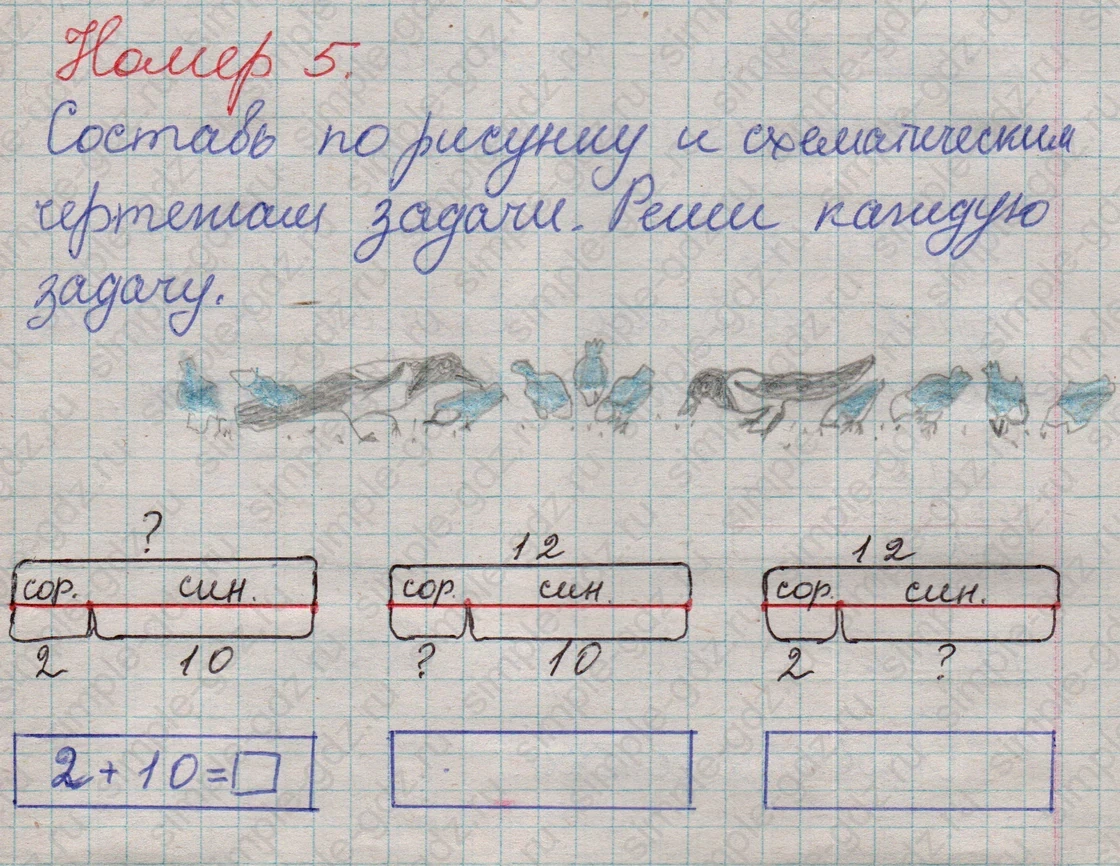 Номер 5.
Составь по рисунку и схематическим
чертежам задачи. Реши каждую
задачу.
? 12 12
сор. син. сор. син. сор. син.
2 10 ? 10 2 ?
2 + 10 = □
simple-gdz.ru